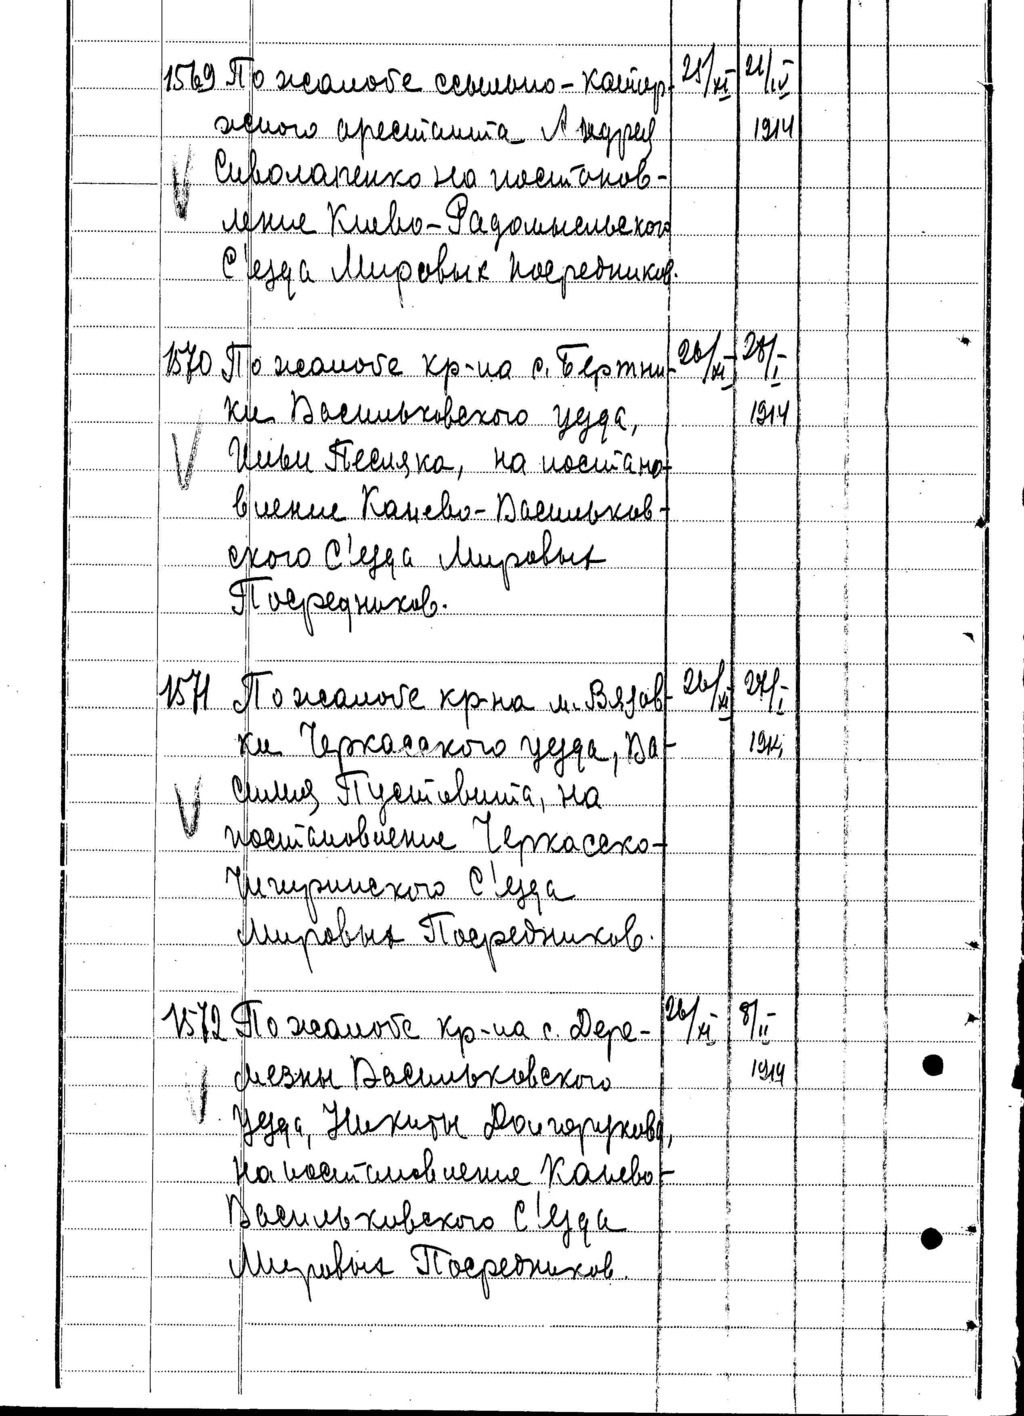 1569 По жалобе ссыльно-каторж- 25/XI 21/IV
жного арестанта Андрея 1914
Сиволапенко на постанов-
ление Киево-Радомысльского
С'езда Мировых Посредников.
1570 По жалобе кр-на с. Бертни- 26/XI 28/I
ки Васильковского уезда, 1914
Ильи Песляка, на постано-
вление Канево-Васильков-
ского С'езда Мировых
Посредников.
1571 По жалобе кр-на м. Вязов- 26/XI 27/I
ки Черкасского уезда, Ва- 1914
силия Пустовита, на
постановление Черкасско-
Чигиринского С'езда
Мировых Посредников.
1572 По жалобе кр-на с. Дере- 26/XI 8/II
мезны Васильковского 1914
уезда, Никиты Долгорукова,
на постановление Канево-
Васильковского С'езда
Мировых Посредников.